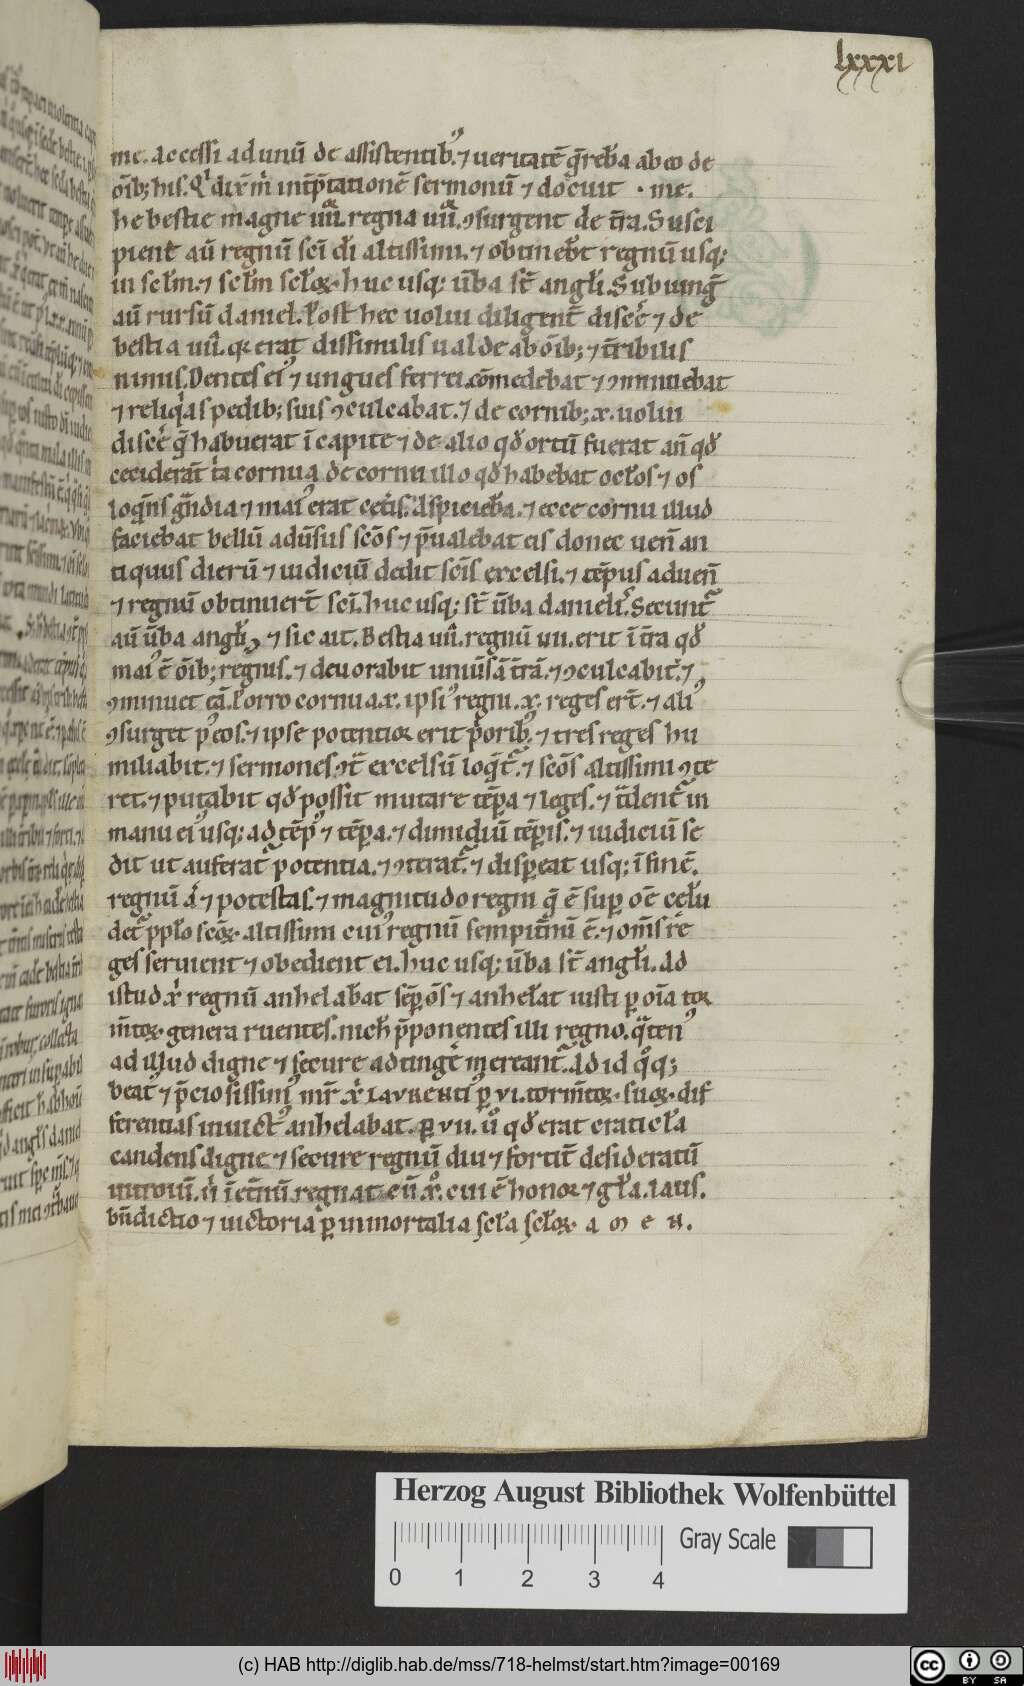 lxxxi
me. Accessi ad unū de assistentib᷒. ⁊ ueritatē q̄reb̄a ab eo de
oīb; his. Qͥ dix̄ m̄ int̄p̄tationē sermonū ⁊ docuit · me.
he bestie magne iiii. regna iiii. ꝯsurgent de t̄ra. Susci
pient aū regnū sc̄i dī altissimi. ⁊ obtineb̄t regnū usq;
in sc̄lm. ⁊ sc̄lm sc̄loꝝ. huc usq; ūba st̄ angl̄i. Subiunḡ
aū rursū daniel. Post hec uolui diligent̄ discē ⁊ de
bestia iiii. q̄ erat dissimilis ualde ab oīb; ⁊ t̄ribilis
nimis. Dentes ei᷒ ⁊ ungues ferrei. cōmedebat ⁊ ꝯminuebat
⁊ reliq̄as pedib; suis ꝯculcabat. ⁊ de cornib; x. uolui
discē q̄ habuerat ī capite ⁊ de alio qd̄ ortū fuerat an̄ qd̄
ceciderāt t̄a cornua de cornu illo qd̄ habebat oc̄los ⁊ os
loq̄ns ḡndia ⁊ mai᷒ erat cet̄is. Aspicieb̄a. ⁊ ecce cornu illud
faciebat bellū adūsus sc̄ōs ⁊ p̄ualebat eis donec uen̄ an
tiquus dierū ⁊ iudiciū dedit sc̄īs excelsi. ⁊ tēpus aduen̄
⁊ regnū obtinuer̄t sc̄i. huc usq; st̄ ūba danielis. Secunt᷑
aū ūba angl̄i ⁊ sic ait. Bestia iiii. regnū iiii. erit ī t̄ra qd̄
mai᷒ ē oīb; regnis. ⁊ deuorabit uniūsā t̄rā. ⁊ ꝯculcabit. ⁊
ꝯminuet eā. Porro cornua x. ipsi᷒ regni. x. reges er̄t. ⁊ ali᷒
ꝯsurget p᷒ eos. ⁊ ipse potentior erit p̄orib᷒. ⁊ tres reges hu
miliabit. ⁊ sermones ꝯt̄ excelsū loq̄t᷑. ⁊ sc̄ōs altissimi ꝯte
ret. ⁊ putabit qd̄ possit mutare tēp̄a ⁊ leges. ⁊ t̄dent᷑ in
manu ei᷒ usq; ad tēp᷒ ⁊ tēp̄a. ⁊ dimidiū tēp̄is. ⁊ iudiciū se
dit ut auferat᷑ potentia. ⁊ ꝯterat᷑. ⁊ dispereat usq; ī finē.
regnū aͥ ⁊ potestas. ⁊ magnitudo regni q̄ ē suꝑ oē cel̄u
det᷑ ppl̄o sc̄oꝝ altissimi cui᷒ regnū sempit̄nū ē. ⁊ om̄s re
ges seruient ⁊ obedient ei. huc usq; ūba st̄ angl̄i. Ad
istud xͥ regnū anhelab̄at sēp̄ ōs ⁊ anhel̄at iusti ꝑ oīa tor
m̄toꝝ genera ruentes. nich̄ p̄ponentes illi regno. q̄ten᷒
ad illud digne ⁊ secure adtingē mereant᷑. Ad id qͦq;
beat᷒ ⁊ p̄ciosissim᷒ mr̄ xͥ LAURENTI᷒ ꝑ VI. torm̄toꝝ suoꝝ dif
ferentias inuict᷒ anhelabat. ꝑ VII. uͦ qd̄ erat craticl̄a
candens digne ⁊ secure regnū diu ⁊ fortit̄ desideratū
introiuī. uͥ ī et̄nū regnat cū xͦ. cui ē honor ⁊ gl̄a. laus.
bn̄dictio ⁊ uictoria ꝑ inmortalia sc̄la sc̄loꝝ. a m e n.
Herzog August Bibliothek Wolfenbüttel
Gray Scale
0 1 2 3 4
(c) HAB http://diglib.hab.de/mss/718-helmst/start.htm?image=00169
cc BY SA